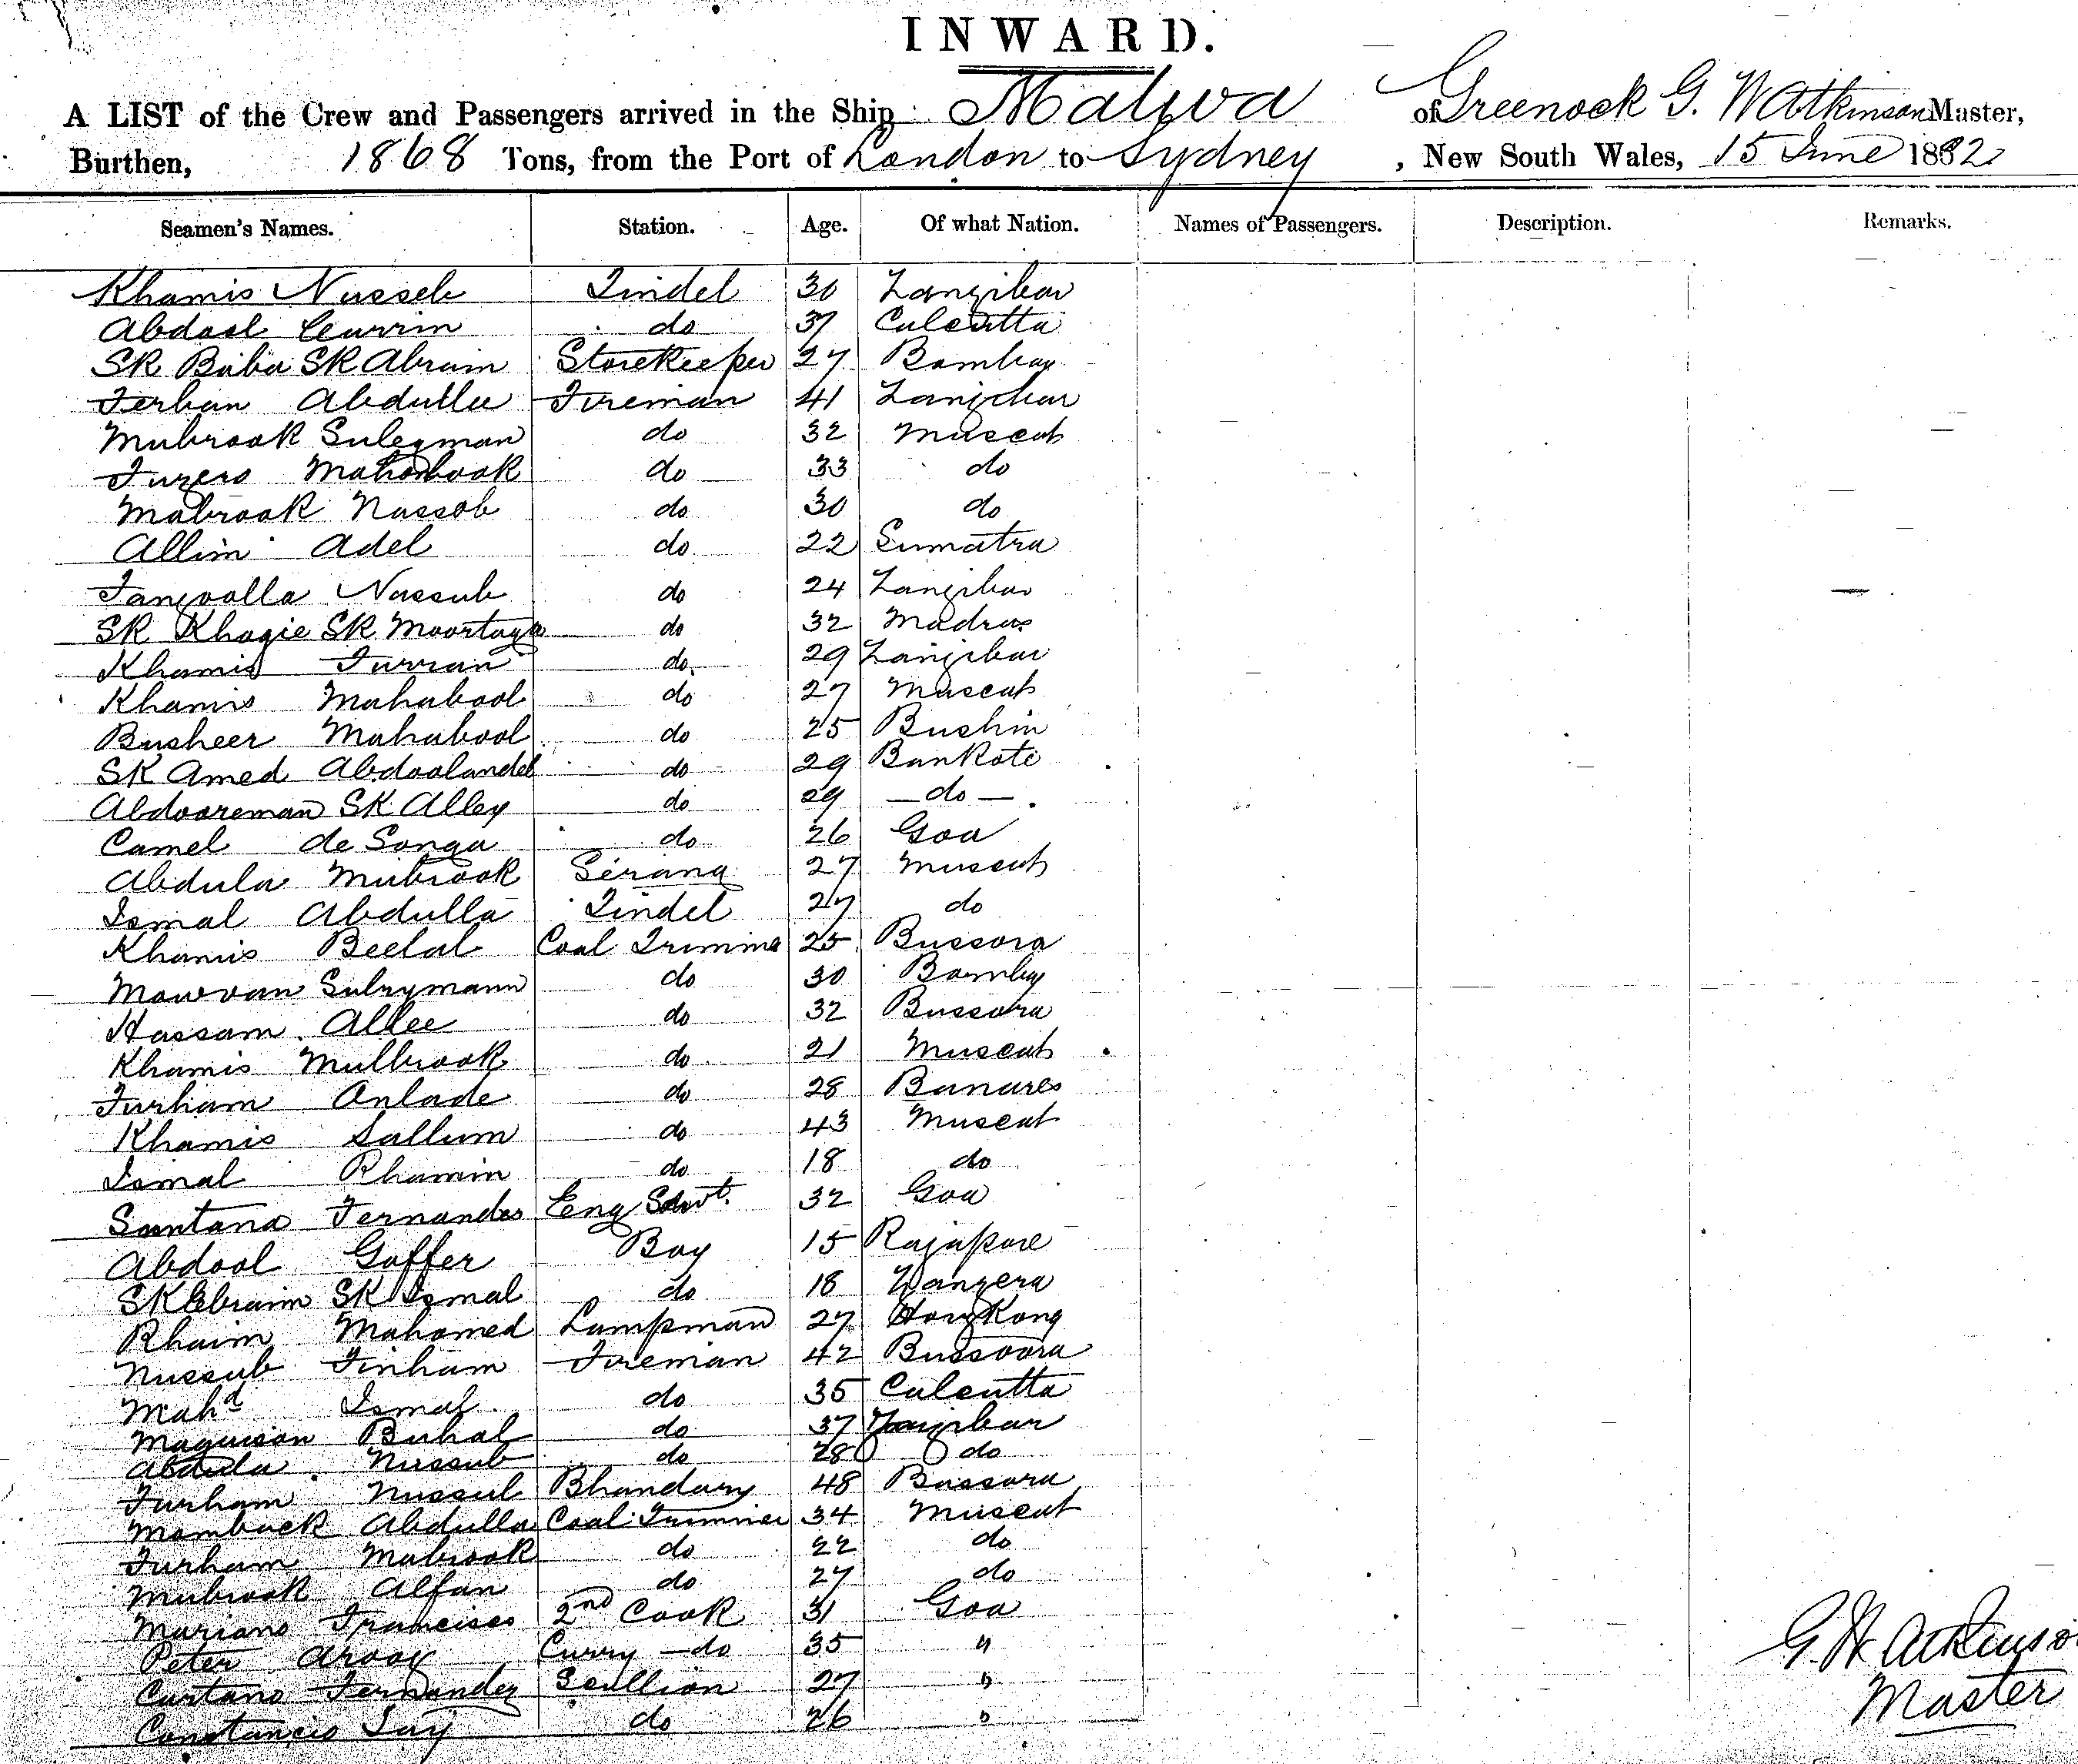 INWARD.
A LIST of the Crew and Passengers arrived in the Ship Malwa of Greenock G. W Atkinson Master,
Burthen, 1868 Tons, from the Port of London to Sydney, New South Wales, 15 June 1882
Seamen's Names. Station. Age. Of what Nation. Names of Passengers. Description. Remarks.
Khamis Nusseb Tindel 30 Zanzibar
Abdool Currim do 37 Calcutta
SK Baba SK Abram Storekeeper 27 Bombay
Ferhan Abdulla Fireman 41 Zanzibar
Mubrook Suleyman do 32 Muscat
do 33 do
Mabrook Nassob do 30 do
Allim Adel do 22 Sumatra
Nassub do 24 Zanzibar
SK Khagie SK Moortuga do 32 Madras
Khamis Furran do 29 Zanzibar
Khamis Mahabool do 27 Muscat
Busheer Mahabool do 25 Bushin
SK Amed Abdoolandel do 29 Bankote
Abdooreman SK Alley do 29 do
Camel de Songa do 26 Goa
Abdula Mubrook Serang 27 Muscat
Ismal Abdulla Tindel 27 do
Khamis Beelal Coal Trimme 25 Bussora
Suleymann do 30 Bomby
Hassam Allee do 32 Bussora
Khamis Mulbrook do 21 Muscat
Furham Anlade do 28 Banares
Khamis Sallum do 43 Muscat
Ismal Rhamin do 18 do
Santana Fernandes Eng Servt. 32 Goa
Abdool Goffer Boy 15 Rajapore
SK Ebraim SK Ismal do 18
Rhaim Mahomed Lampman 27 Hong Kong
Nussub Finham Fireman 42 Bussoora
Mahd Ismal do 35 Calcutta
Buhal do 37 Zanzibar
Abdula Nussub do 28 do
Furham Nussul Bhandary 48 Bussora
Momback Abdulla Coal Trimmer 34 Muscat
Furham Mabrook do 22 do
Mubrook Alfan do 27 do
Mariano Francisco 2nd Cook 31 Goa
Peter Arooy Curry do 35 "
Caetano Fernandez Scullion 27 "
Constancio do 26 "
G. W Atkinso
Master